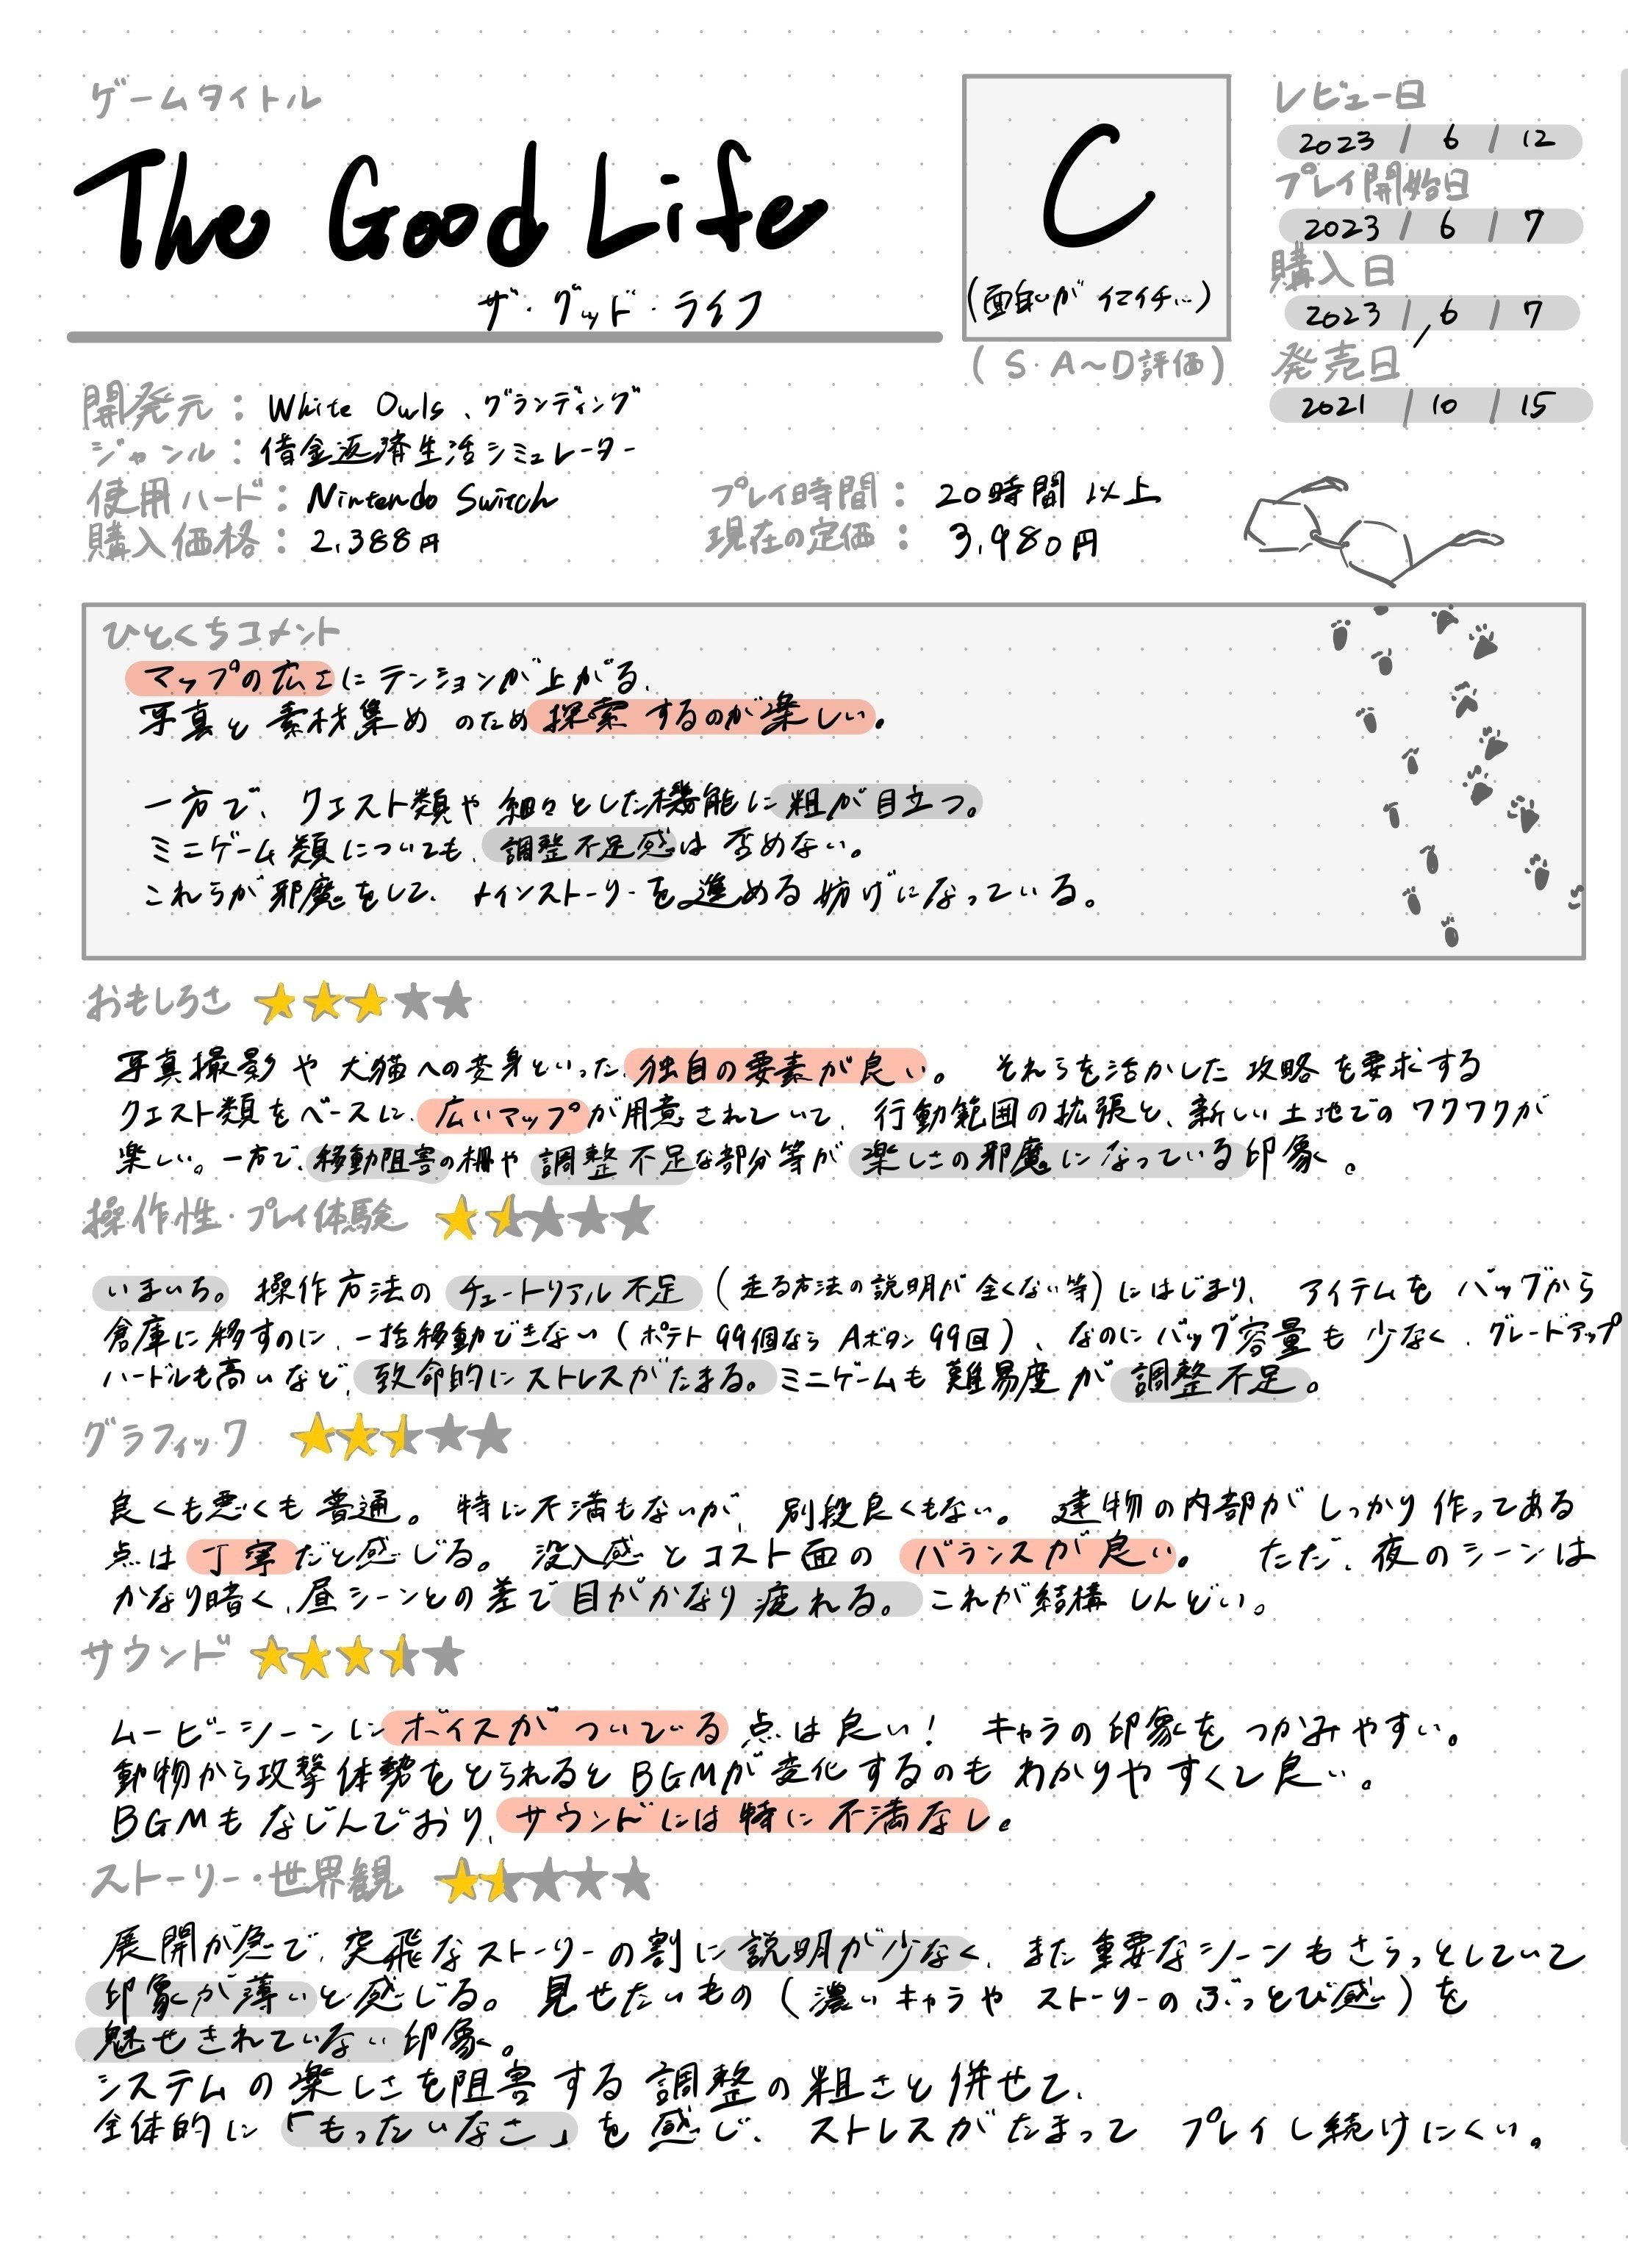 ゲームタイトル
The Good Life
ザ・グッド・ライフ
C
(面白いが イマイチ…)
(S・A〜D評価)
レビュー日
2023 / 6 / 12
プレイ開始日
2023 / 6 / 7
購入日
2023 / 6 / 7
発売日
2021 / 10 / 15
開発元：White Owls、グランディング
ジャンル：借金返済生活シミュレーター
使用ハード：Nintendo Switch
プレイ時間：20時間 以上
購入価格：2,388円
現在の定価：3,980円
ひとくちコメント
マップの広さにテンションが上がる、
写真と素材集めのため探索するのが楽しい。
一方で、クエスト類や細々とした機能に粗が目立つ。
ミニゲーム類についても、調整不足感は否めない。
これらが邪魔をして、メインストーリーを進める妨げになっている。
おもしろさ ★★★★★
写真撮影や犬猫への変身といった、独自の要素が良い。 それらを活かした攻略を要求する
クエスト類をベースに、広いマップが用意されていて、行動範囲の拡張と、新しい土地でのワクワクが
楽しい。一方で、移動阻害の柵や調整不足な部分等が楽しさの邪魔になっている印象。
操作性・プレイ体験 ★★★★★
いまいち。操作方法のチュートリアル不足（走る方法の説明が全くない等）にはじまり、アイテムをバッグから
倉庫に移すのに、一括移動できない（ポテト99個ならAボタン99回）、なのにバッグ容量も少なく、グレードアップ
ハードルも高いなど、致命的にストレスがたまる。ミニゲームも難易度が調整不足。
グラフィック ★★★★★
良くも悪くも普通。特に不満もないが、別段良くもない。建物の内部がしっかり作ってある
点は丁寧だと感じる。没入感とコスト面のバランスが良い。 ただ、夜のシーンは
かなり暗く、昼シーンとの差で目がかなり疲れる。これが結構しんどい。
サウンド ★★★★★
ムービーシーンにボイスがついている点は良い！ キャラの印象をつかみやすい。
動物から攻撃体勢をとられるとBGMが変化するのもわかりやすくて良い。
BGMもなじんでおり、サウンドには特に不満なし。
ストーリー・世界観 ★★★★★
展開が急で、突飛なストーリーの割に説明が少なく、また重要なシーンもさらっとしていて
印象が薄いと感じる。見せたいもの（濃いキャラやストーリーのぶっとび感）を
魅せきれていない印象。
システムの楽しさを阻害する調整の粗さと併せて、
全体的に「もったいなさ」を感じ、ストレスがたまってプレイし続けにくい。